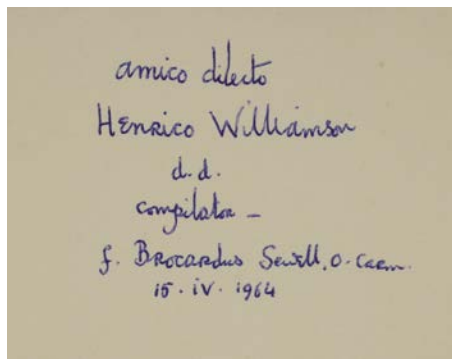 amico dilecto
Henrico Williamson
d.d.
compilator –
f. Brocardus Sewell, O. Carm.
15 · iv · 1964